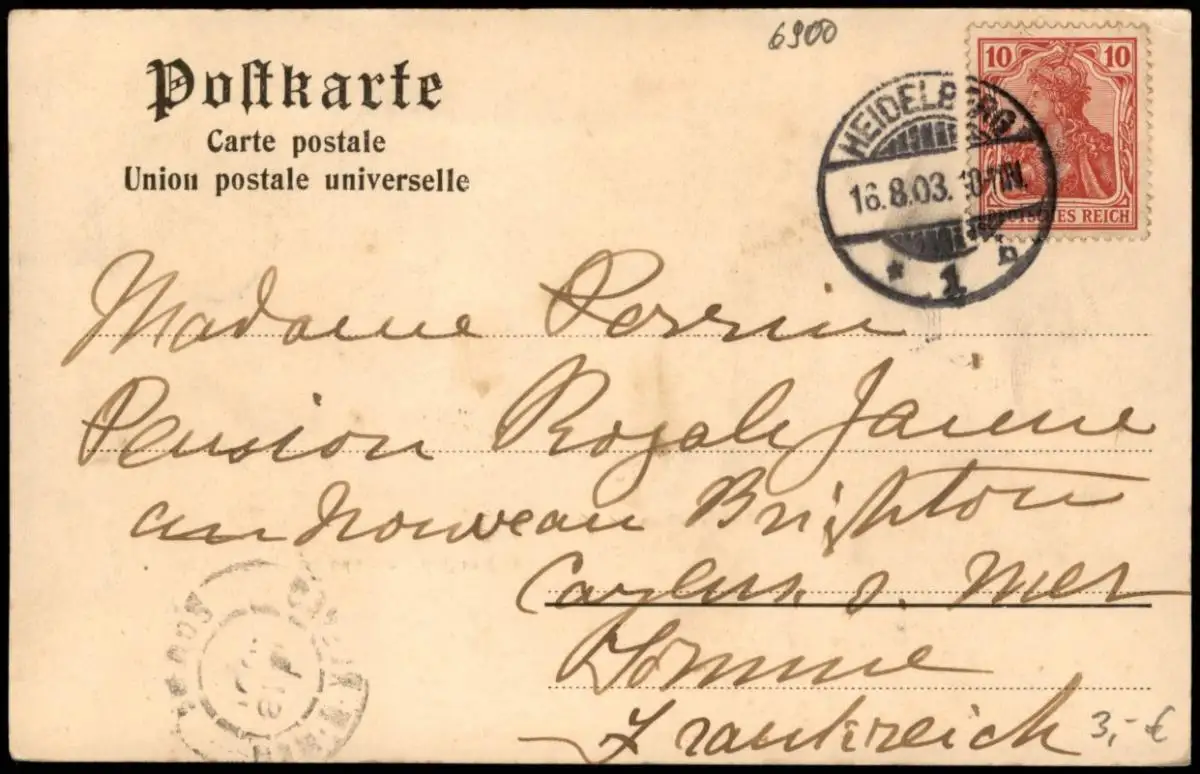 6900
Postkarte
Carte postale
Union postale universelle
10 10
DEUTSCHES REICH
HEIDELBERG
16.8.03. 10-11N.
* 1 n
Madame Perrin
Pension Royale Jeanne
au nouveau Brighton
Cayeux s. Mer
Somme
Frankreich
3,- €